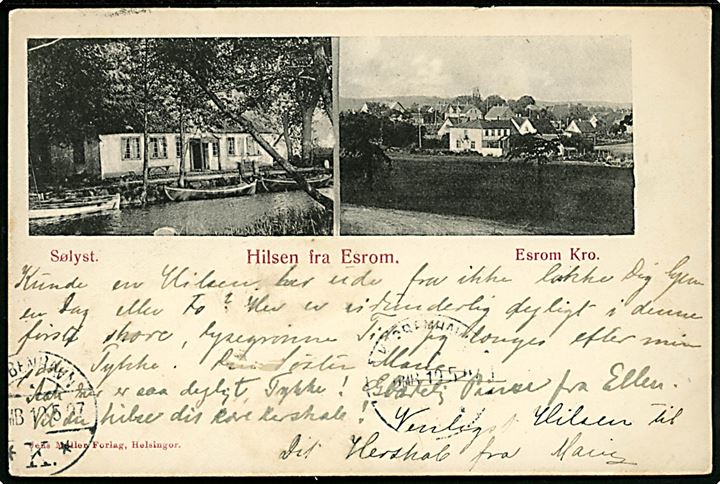 Sølyst.
Hilsen fra Esrom.
Esrom Kro.
Kunde en Hilsen her ude fra ikke lokke Dig hjem
en Dag eller to? Her er vidunderlig dejligt i denne
første store, lysegrønne Tid. Jeg længes efter min
Tykke. Din Søster Marie
her er saa dejligt, Tykke! fra Ellen.
Vil du hilse dit kære herskab!
Venligst Hilsen til
Dit Herskab fra
KJØBENHAVN
OMB 12.5.07
* K. *
KJØBENHAVN
OMB 12.5.
Jens Møller Forlag, Helsingor.